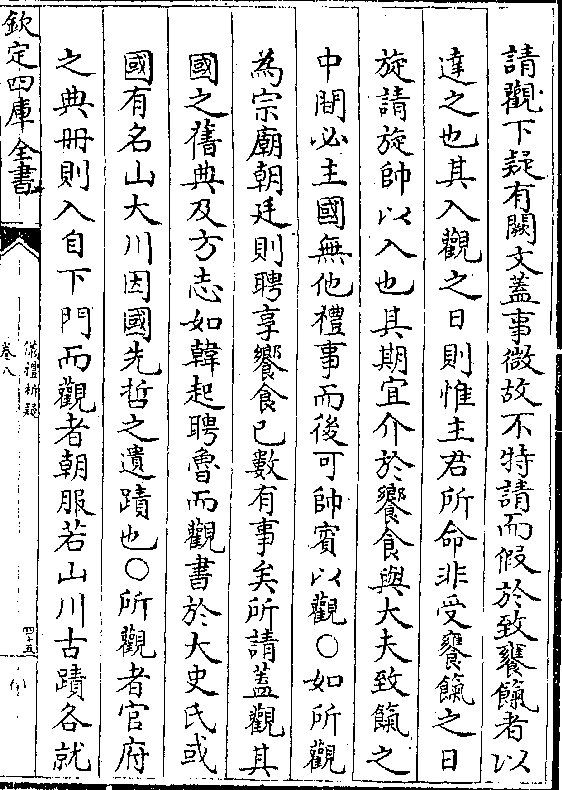 請觀下疑有闕文蓋事微故不特請而假於致饔餼者以
達之也其入觀之日則惟主君所命非受饔餼之日
旋請旋帥以入也其期宜介於饗食與大夫致餼之
中間必主國無他禮事而後可帥賓以觀○如所觀
為宗廟朝廷則聘享饗食已數有事矣所請蓋觀其
國之舊典及方志如韓起聘魯而觀書於大史氏或
國有名山大川因國先哲之遺蹟也○所觀者官府
之典冊則入自下門而觀者朝服若山川古蹟各就
欽定四庫全書
儀禮析疑
卷八
四十五